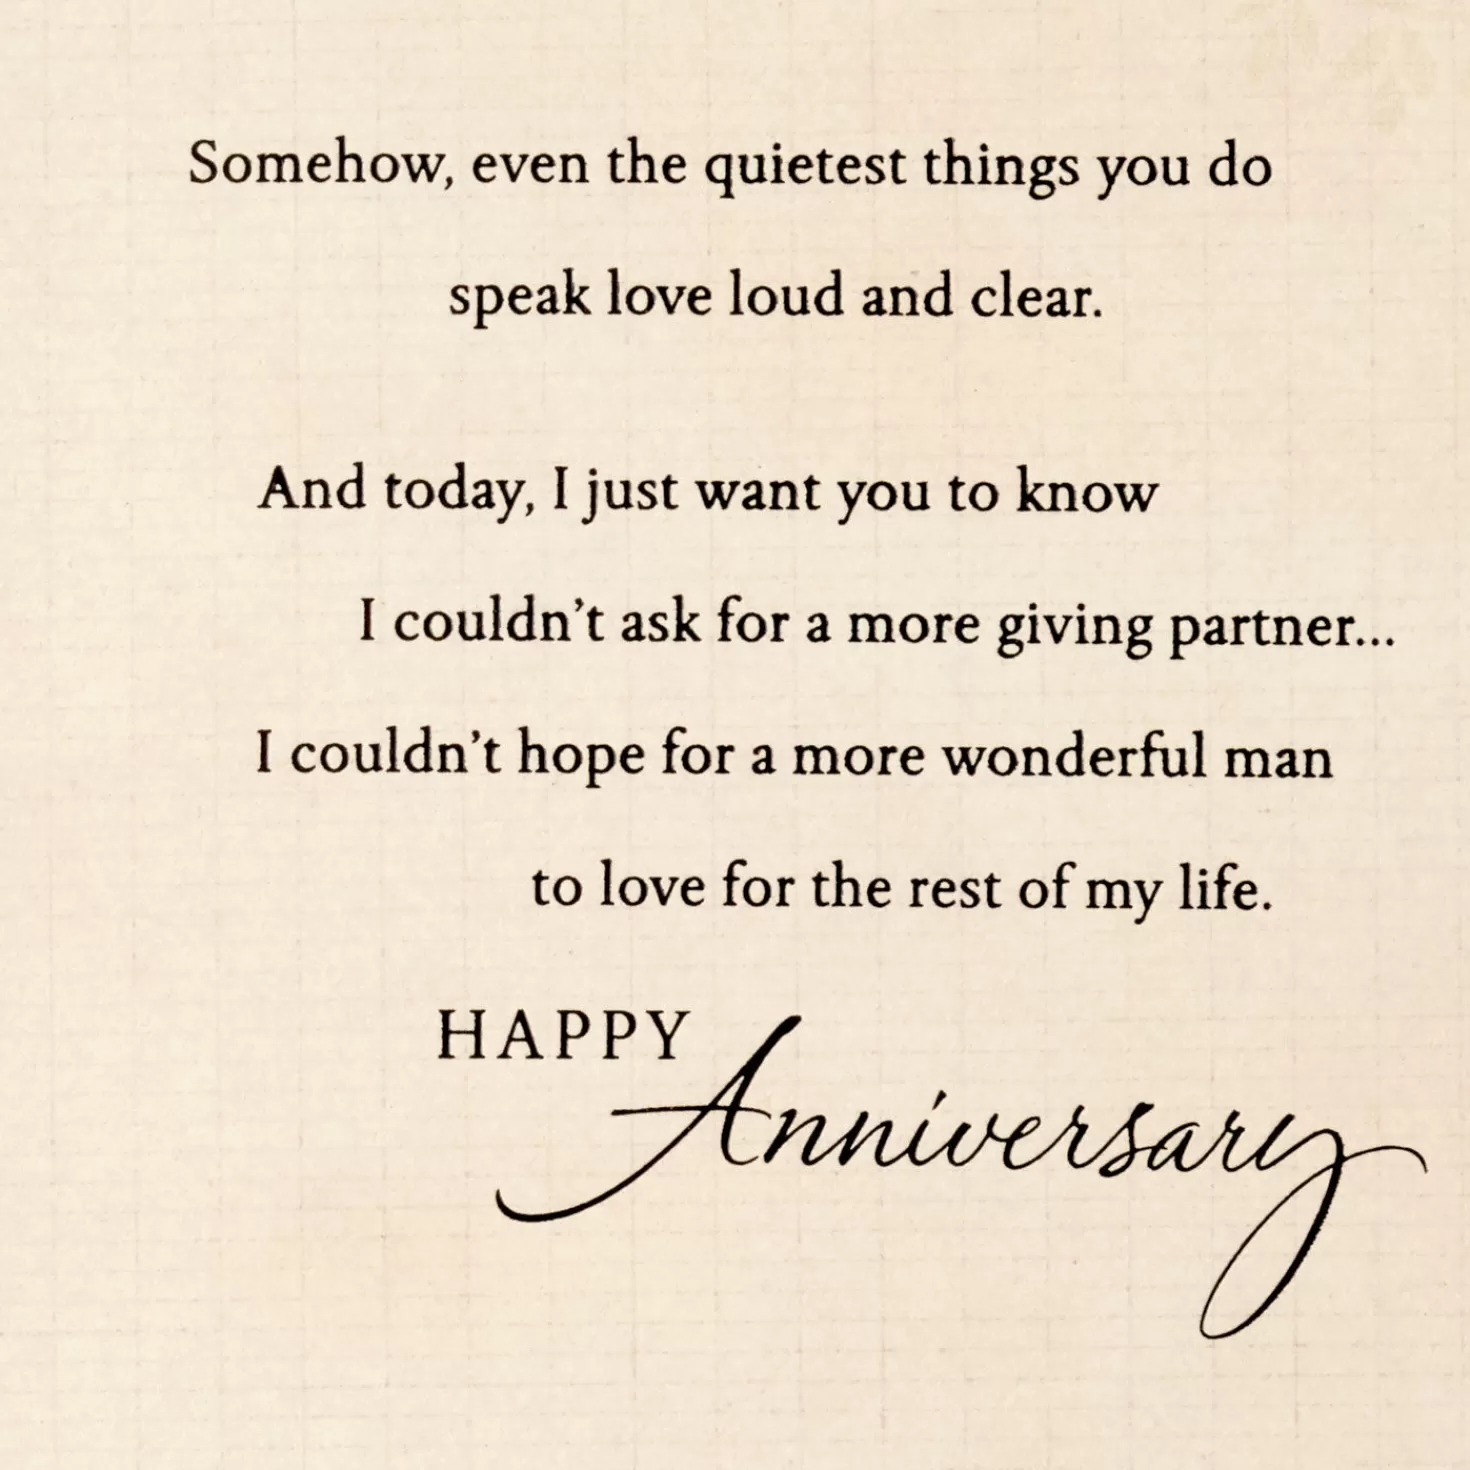 Somehow, even the quietest things you do
speak love loud and clear.
And today, I just want you to know
I couldn’t ask for a more giving partner...
I couldn’t hope for a more wonderful man
to love for the rest of my life.
HAPPY
Anniversary